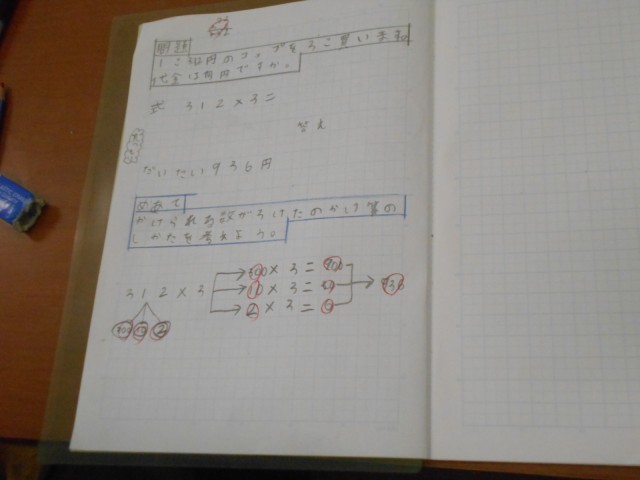 問題
1こ312円のコップを3こ買います。
代金は何円ですか。
式 312×3=
答え
だいたい936円
めあて
かけられる数が3けたのかけ算の
しかたを考えよう。
300×3=900
312×3 10×3=30 936
2×3=6
300 10 2